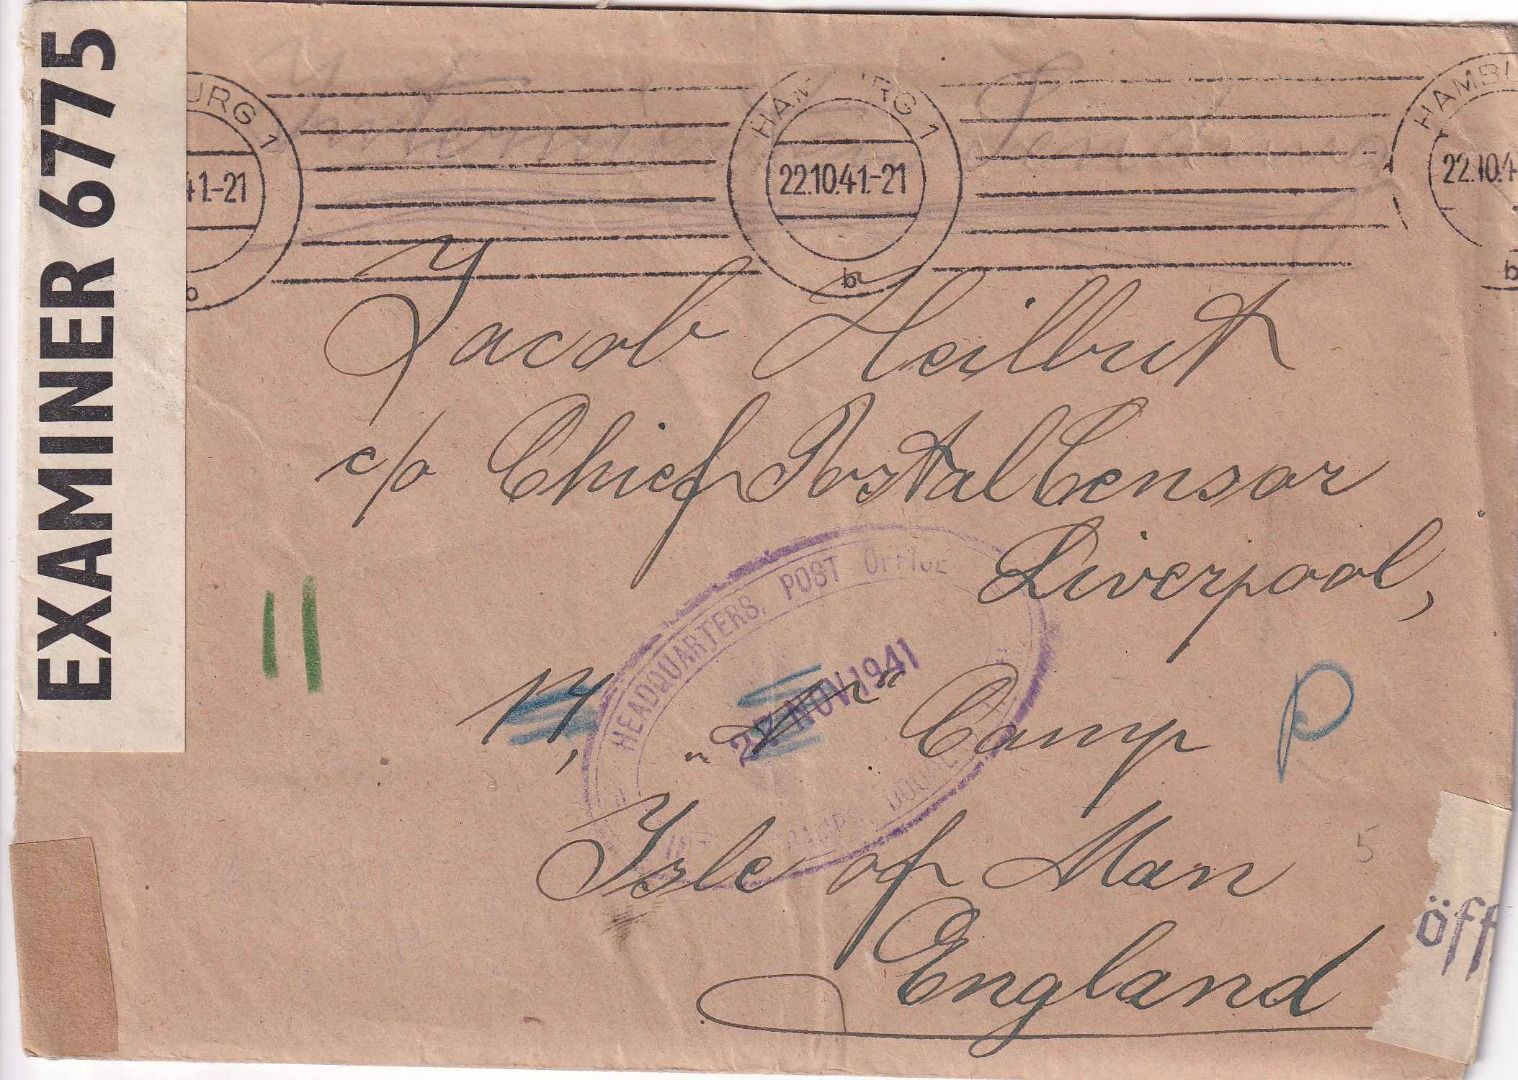 EXAMINER 6775
URG 1
41.-21
b
HAMBURG 1
22.10.41.-21
b
HAMBU
22.10.4
b
Interniertensendung
Jacob Heilbut
c/o Chief Postal Censor
Liverpool,
"N" Camp
P
Isle of Man
England
HEADQUARTERS, POST OFFICE
27 NOV 1941
CAMPS DOUGL
5
öff